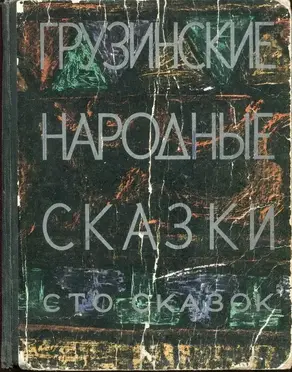 ГРУЗИНСКИЕ
НАРОДНЫЕ
СКАЗКИ
СТО СКАЗОК